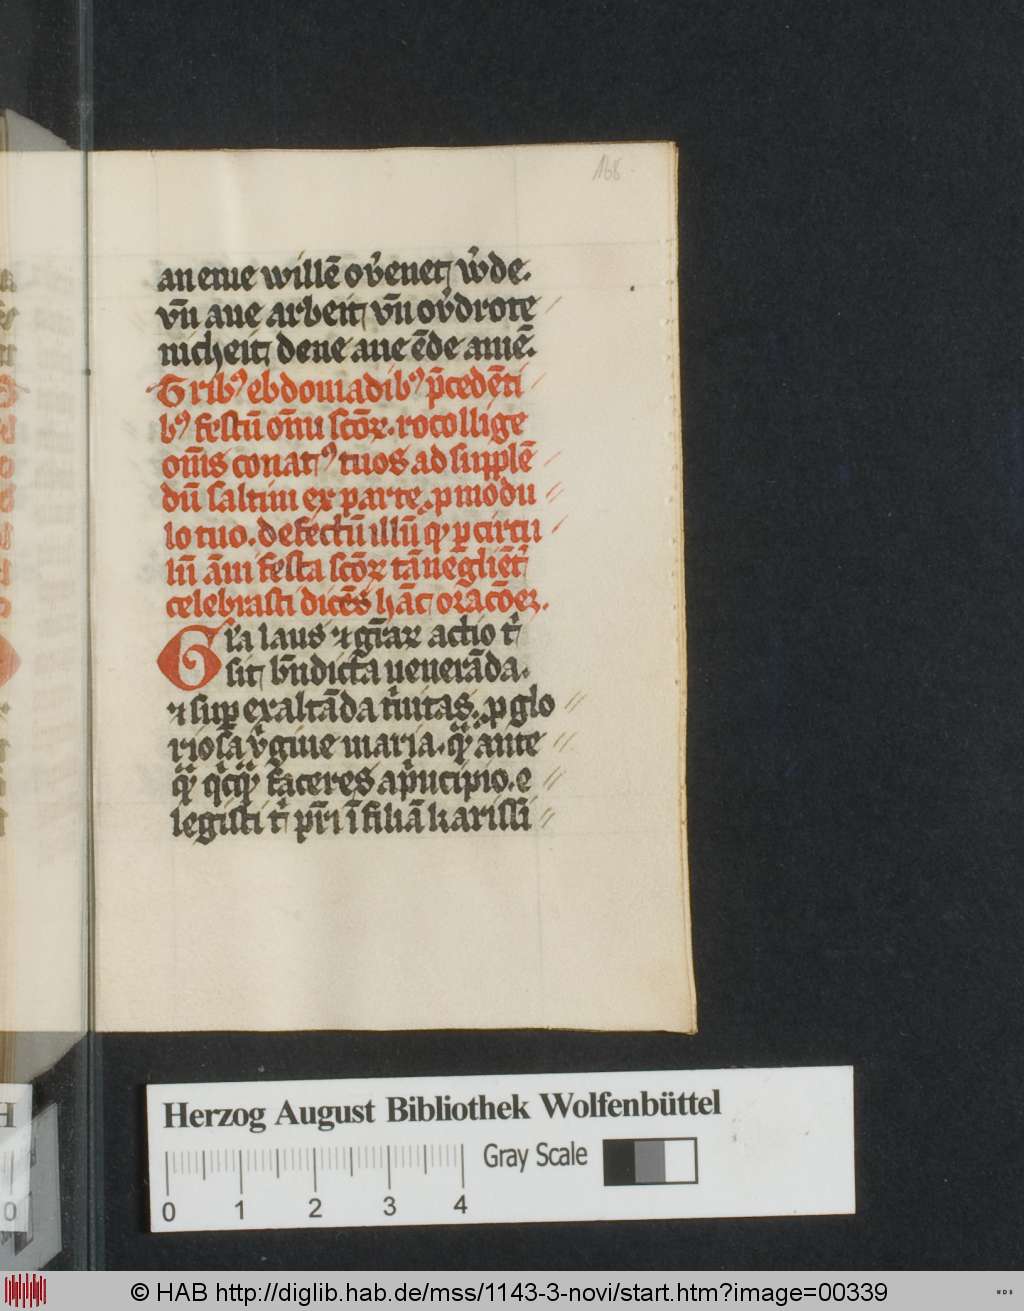 168
an eme willē ov̓enet w̓de.
vn̄ ane arbeit vn̄ ov̓drote
nicheit dene ane ēde amē.
Tribꝰ ebdomadibꝰ p̄cedēti
bꝰ festū om̄u sc̄oꝝ. rocollige
om̄s conatꝰ tuos ad supplē
dū saltim ex ꝑte. ꝓ modu
lo tuo. defectū illū qꝫ ꝑ circu
lū āni festa sc̄oꝝ tā neglīēt̓
celebrasti dicēs hāc or̄acōeꝫ.
Gr̄a laus ⁊ gr̄aꝝ actio t̓
sit bn̄dicta venerāda.
⁊ suꝑ exaltāda t̓nitas. ꝓ glo
riosa v̓gine maria. quā ante
quā quicquā faceres a p̓ncipio. e
legisti t̓ pr̄i ī filiā karissi
Herzog August Bibliothek Wolfenbüttel
Gray Scale
0 1 2 3 4
© HAB http://diglib.hab.de/mss/1143-3-novi/start.htm?image=00339